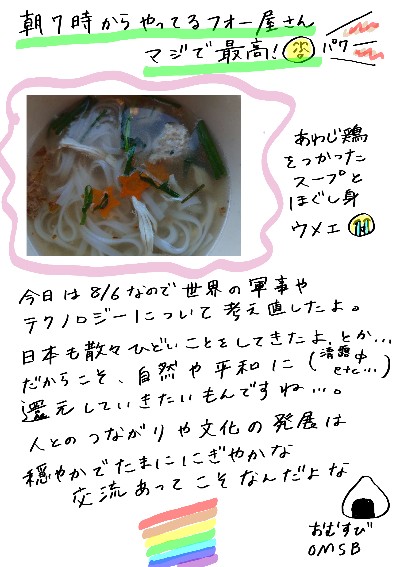 朝7時からやってるフォー屋さん
マジで最高!
パク
あわじ鶏
をつかった
スープと
ほぐし身
ウメェ
今日は8/6なので世界の軍事や
テクノロジーについて考え直したよ。
日本も散々ひどいことをしてきたよ、とか…
だからこそ、自然や平和に
(清露中
etc…)
還元していきたいもんですね…。
人とのつながりや文化の発展は
穏やかでたまににぎやかな
交流あってこそなんだよな
おむすび
OMSB